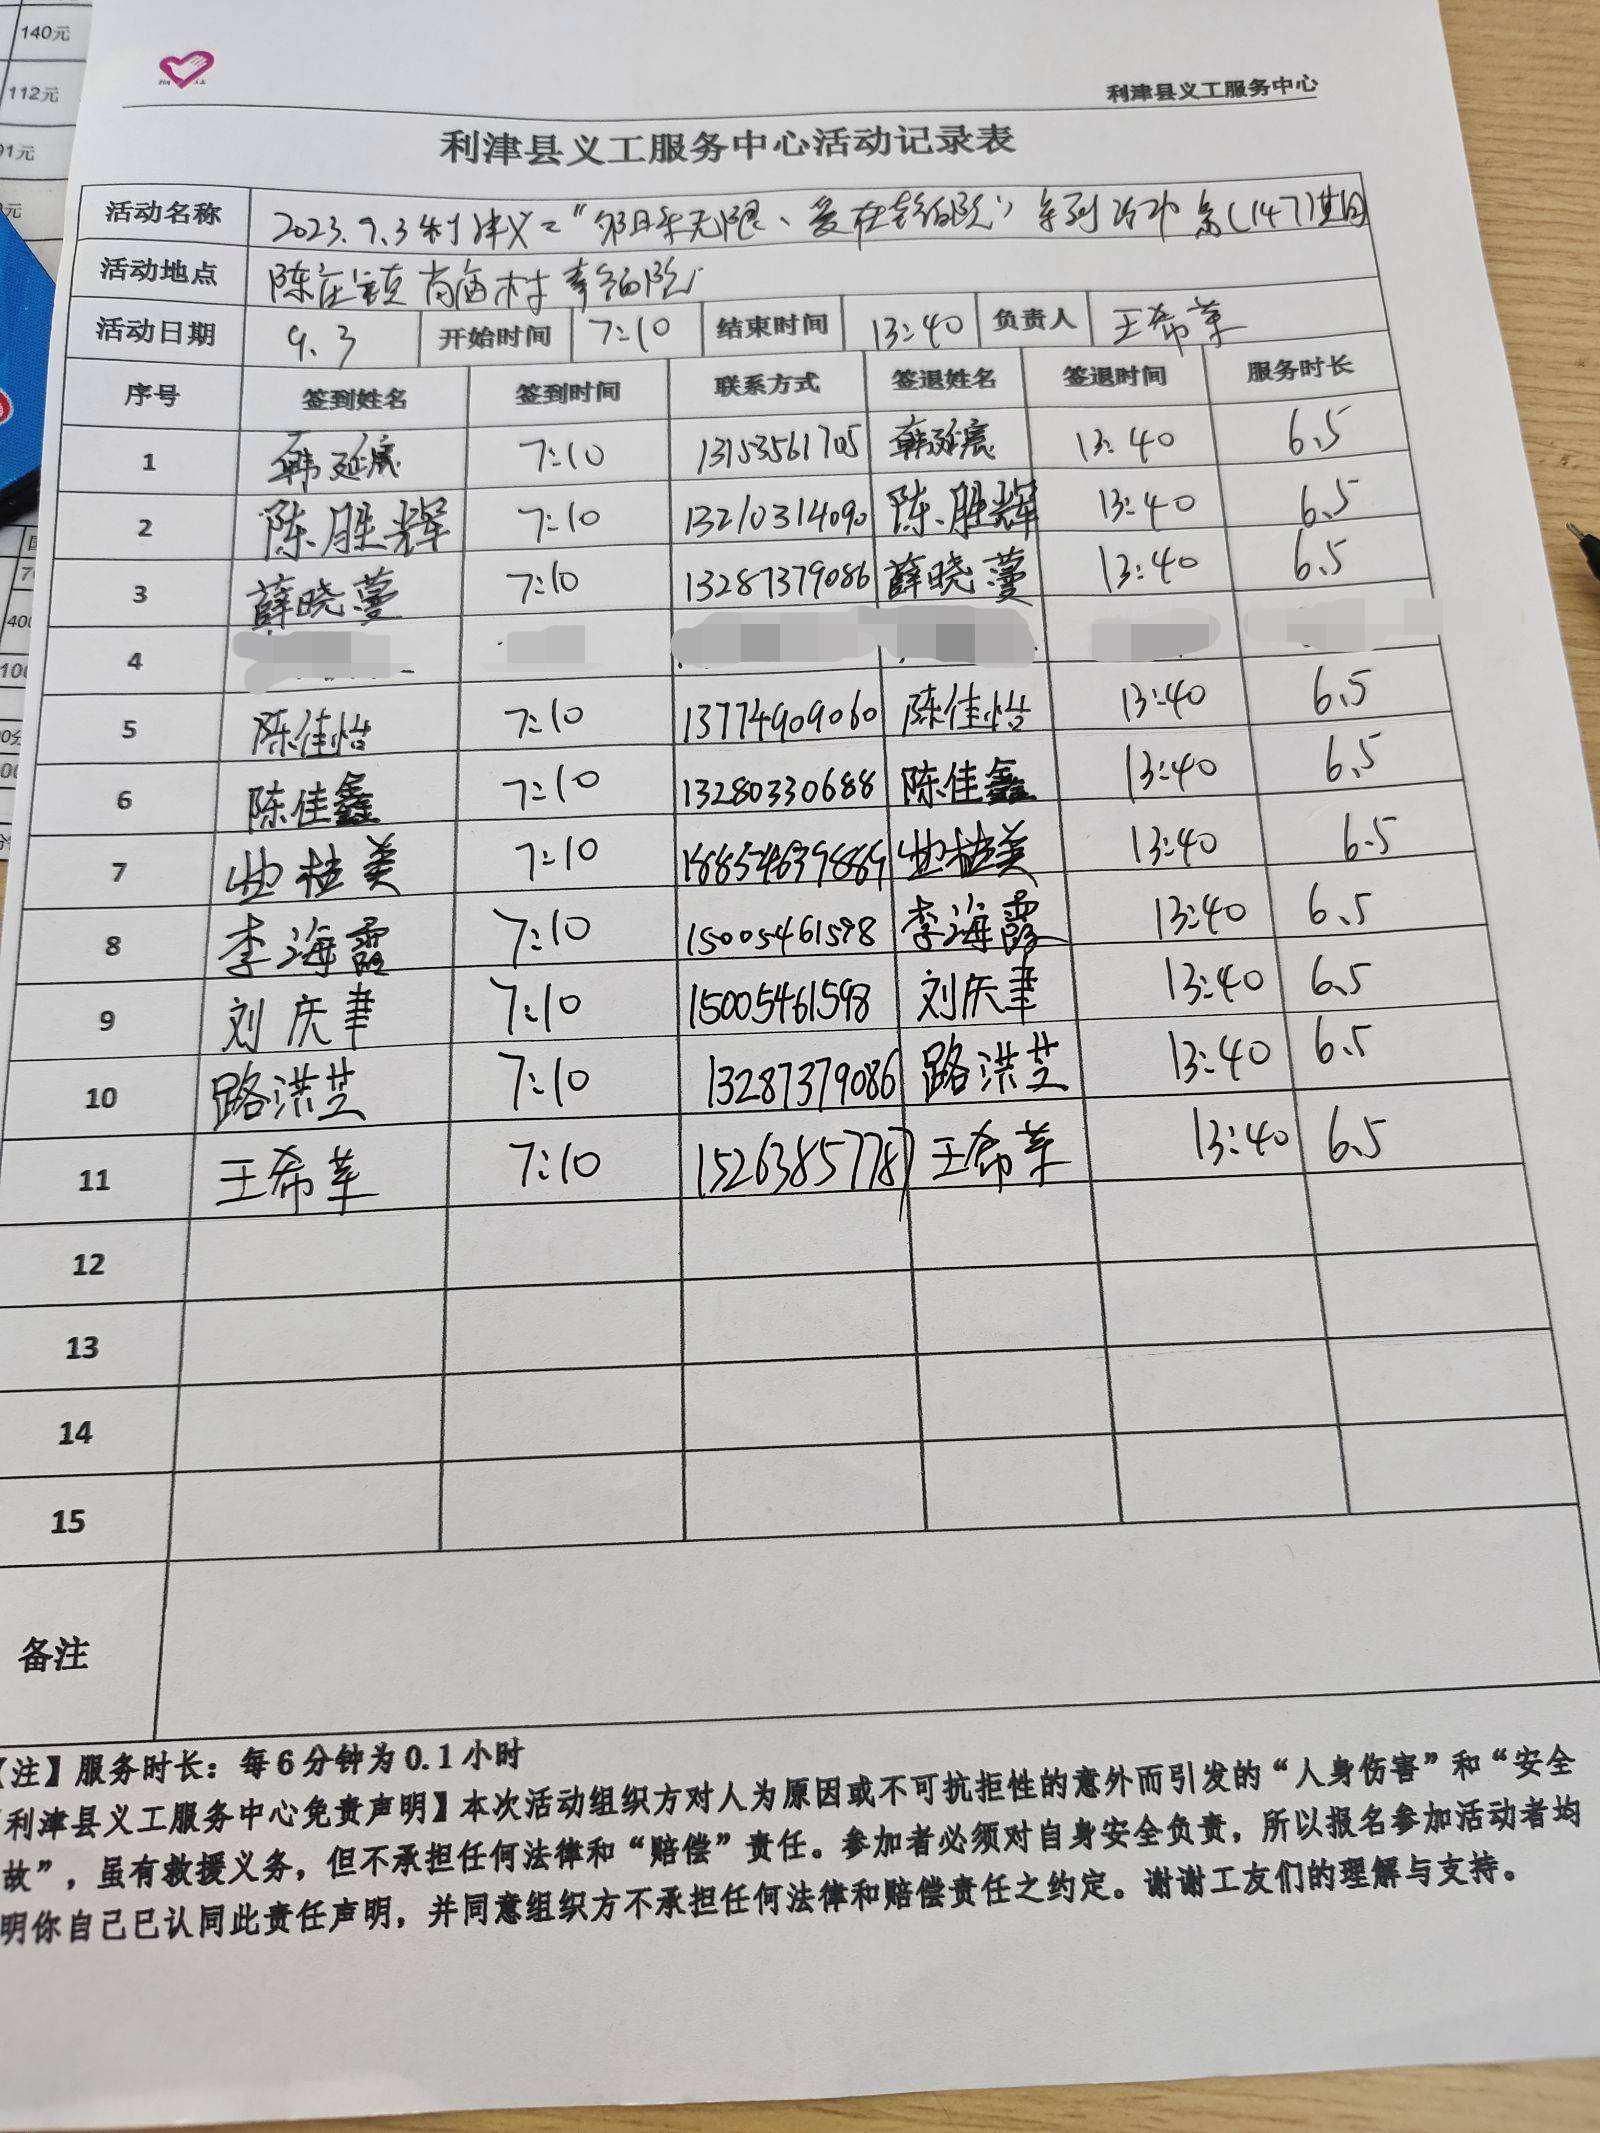 140元
112元
91元
元
利津县义工服务中心
利津县义工服务中心活动记录表
活动名称 2023.9.3利津义工“夕阳无限、爱在敬老院”系列活动第(147)期
活动地点 陈庄镇 村 老院
活动日期 9.3 开始时间 7:10 结束时间 13:40 负责人 王希苹
序号 签到姓名 签到时间 联系方式 签退姓名 签退时间 服务时长
1 韩延宸 7:10 13153561705 韩延宸 13:40 6.5
2 陈胜辉 7:10 13210314090 陈胜辉 13:40 6.5
3 薛晓蔓 7:10 13287379086 薛晓蔓 13:40 6.5
4
5 陈佳怡 7:10 13774909060 陈佳怡 13:40 6.5
6 陈佳鑫 7:10 13280330688 陈佳鑫 13:40 6.5
7 曲桂美 7:10 18854639889 曲桂美 13:40 6.5
8 李海霞 7:10 15005461598 李海霞 13:40 6.5
9 刘庆聿 7:10 15005461598 刘庆聿 13:40 6.5
10 路洪芝 7:10 13287379086 路洪芝 13:40 6.5
11 王希苹 7:10 15263857787 王希苹 13:40 6.5
12
13
14
15
备注
【注】服务时长：每6分钟为0.1小时
利津县义工服务中心免责声明】本次活动组织方对人为原因或不可抗拒性的意外而引发的“人身伤害”和“安全
故”，虽有救援义务，但不承担任何法律和“赔偿”责任。参加者必须对自身安全负责，所以报名参加活动者均
明你自己已认同此责任声明，并同意组织方不承担任何法律和赔偿责任之约定。谢谢工友们的理解与支持。